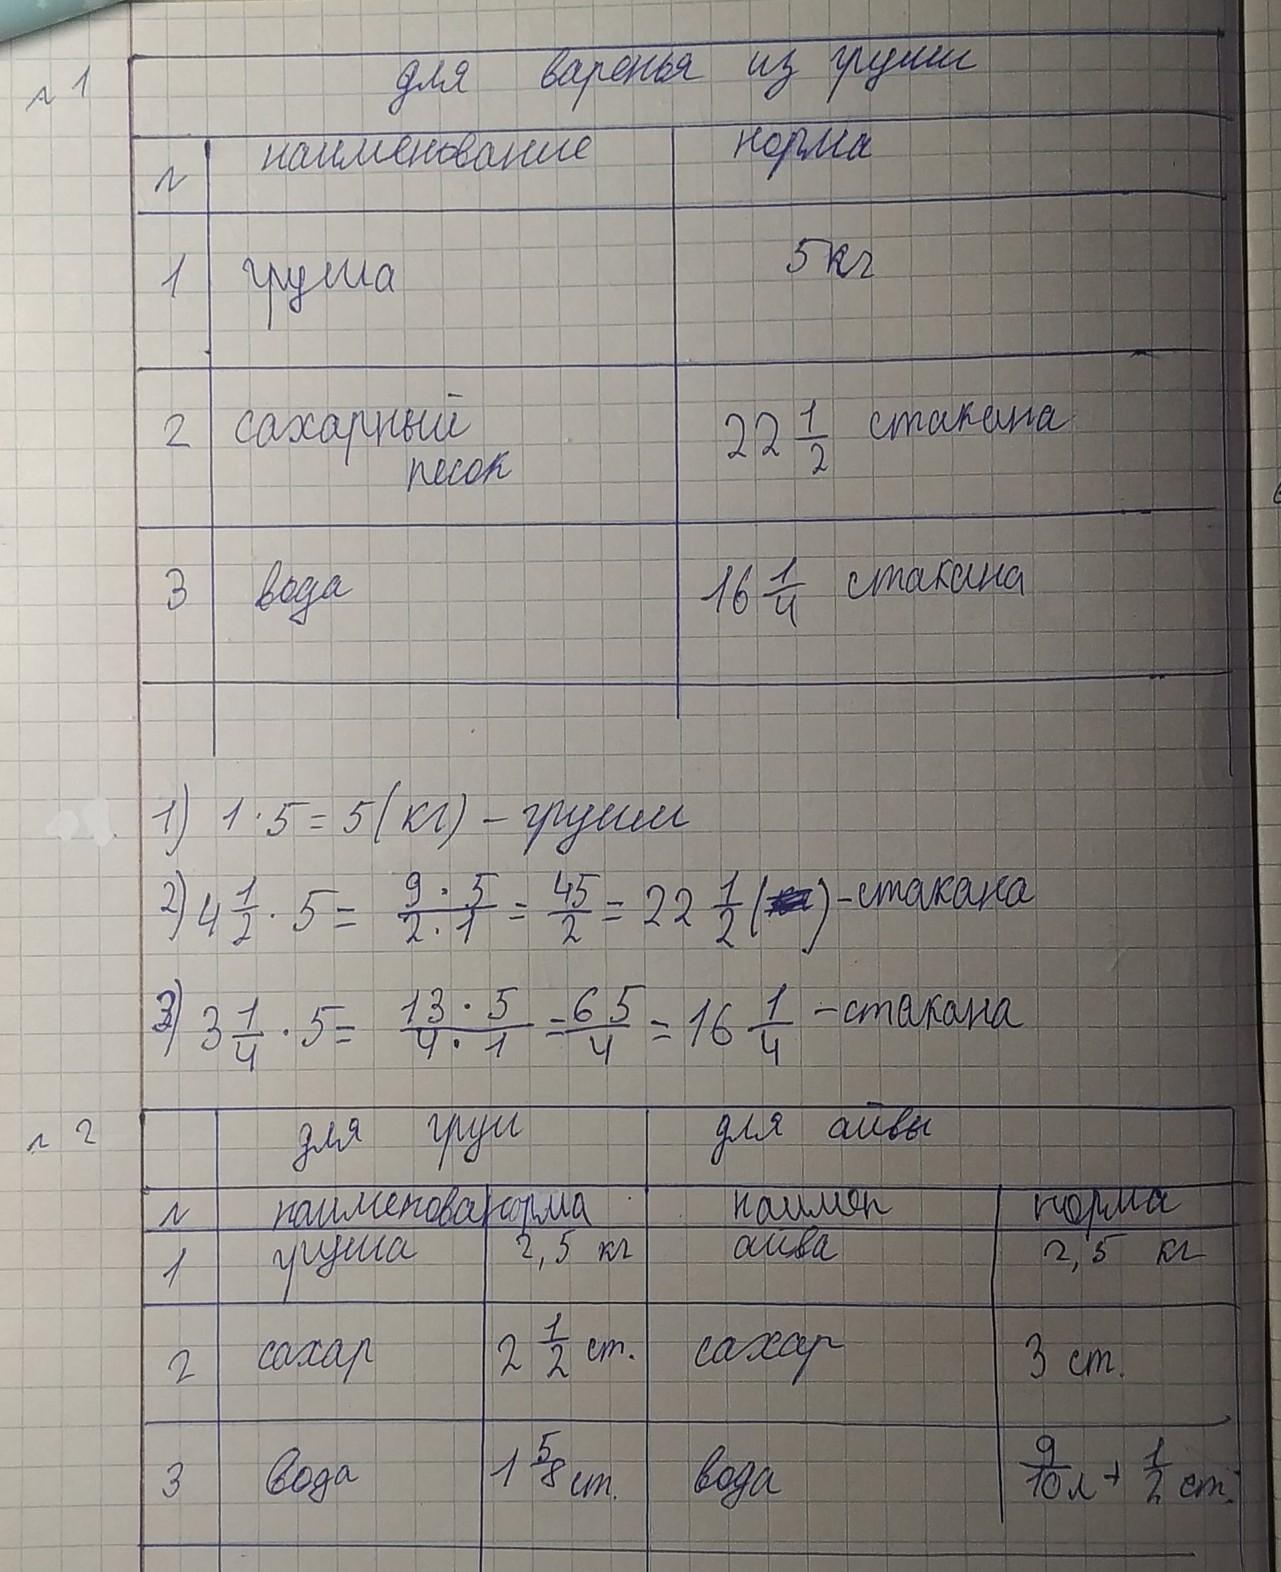 №1
для варенья из груши
№ наименование норма
1 груша 5 кг
2 сахарный песок 22 1/2 стакана
3 вода 16 1/4 стакана
1) 1 · 5 = 5 (кг) - груши
2) 4 1/2 · 5 = 9 · 5 / 2 · 1 = 45/2 = 22 1/2 ( ) - стакана
3) 3 1/4 · 5 = 13 · 5 / 4 · 1 = 65/4 = 16 1/4 - стакана
№2
для груш для айвы
№ наименова норма наимен норма
1 груша 2,5 кг айва 2,5 кг
2 сахар 2 1/2 ст. сахар 3 ст.
3 вода 1 5/8 ст. вода 9/10 л + 1/2 ст.